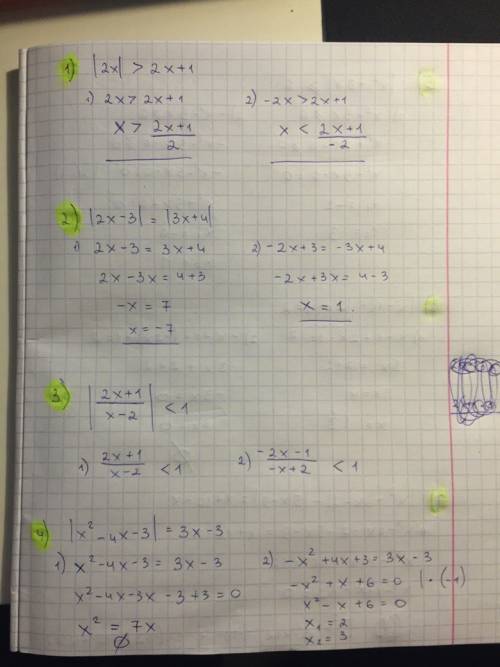 1) |2x| > 2x+1
1) 2x > 2x+1
x > (2x+1)/2
2) -2x > 2x+1
x < (2x+1)/-2
2) |2x-3| = |3x+4|
1) 2x-3 = 3x+4
2x-3x = 4+3
-x = 7
x = -7
2) -2x+3 = -3x+4
-2x+3x = 4-3
x = 1.
3) |(2x+1)/(x-2)| < 1
1) (2x+1)/(x-2) < 1
2) (-2x-1)/(-x+2) < 1
4) |x²-4x-3| = 3x-3
1) x²-4x-3 = 3x-3
x²-4x-3x-3+3=0
x² = 7x
∅
2) -x²+4x+3 = 3x-3
-x²+x+6=0 |·(-1)
x²-x+6=0
x₁=2
x₂=3